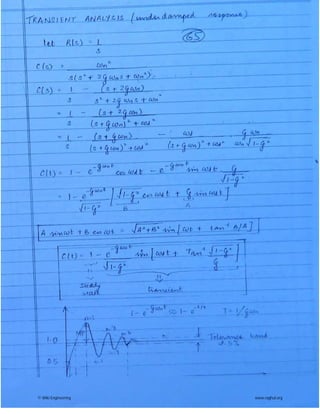 TRANSIENT ANALYSIS (underdamped response)
65
let R(s) = 1/s
C(s) = ωn² / s(s² + 2ζωns + ωn²)
C(s) = 1/s - (s + 2ζωn) / s² + 2ζωns + ωn²
= 1/s - (s + 2ζωn) / (s + ζωn)² + ωd²
= 1/s - (s + ζωn) / (s + ζωn)² + ωd² - ωd / (s + ζωn)² + ωd² · ζωn / ωn√1-ζ²
C(t) = 1 - e^-ζωnt cos ωdt - e^-ζωnt sin ωdt ζ/√1-ζ²
= 1 - e^-ζωnt/√1-ζ² [√1-ζ² cos ωdt + ζ sin ωdt]
B A
A sinωt + B cos ωt = √A²+B² sin [ωt + tan⁻¹ B/A]
C(t) = 1 - e^-ζωnt/√1-ζ² sin [ωdt + Tan⁻¹ √1-ζ²/ζ]
Steady state
transient
1 - e^-ζωnt ≈ 1 - e^-t/T T = 1/ζωn
1.0
Tolerance band
± 5%
0.5
© Wiki Engineering
www.raghul.org